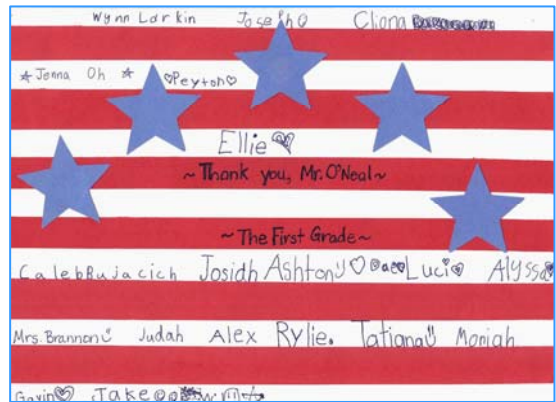 Wynn Larkin Joseph Cliona
Jenna Oh Peyton
Ellie
~Thank you, Mr. O'Neal~
~The First Grade~
Caleb Bujacich Josiah Ashton Luci Alyssa
Mrs. Brannon Judah Alex Rylie. Tatiana Moriah
Gavin Jake